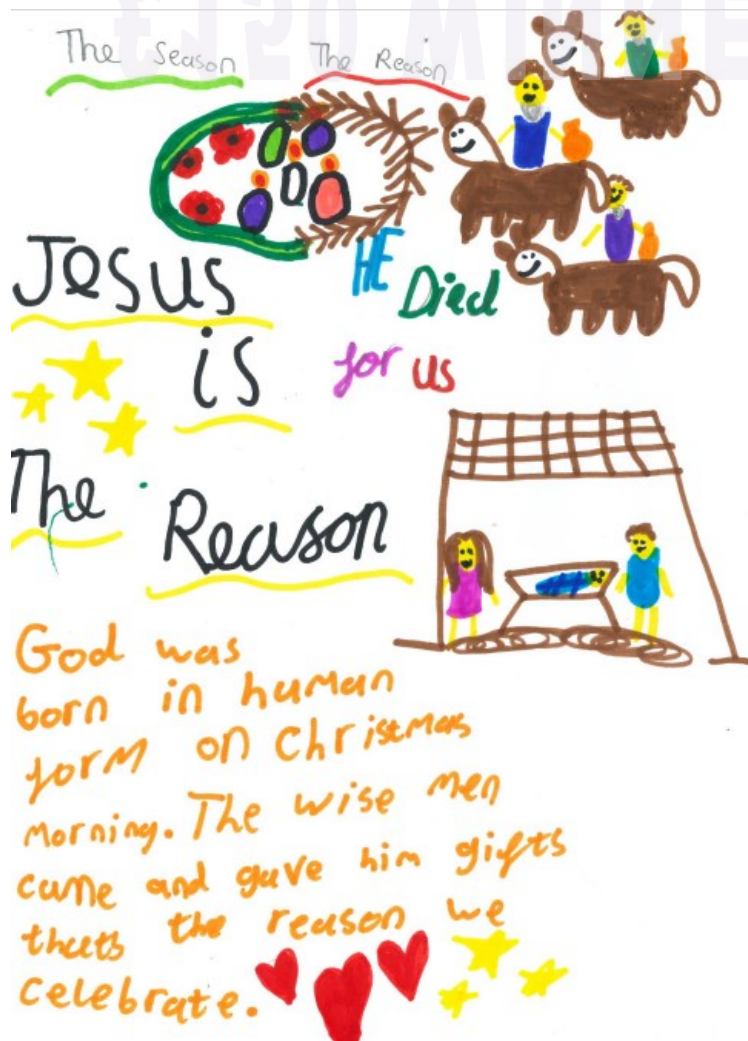 The Season The Reason
Jesus
HE Died
is
for us
The
Reason
God was
born in human
form on Christmas
morning. The wise men
came and gave him gifts
thats the reason we
celebrate.